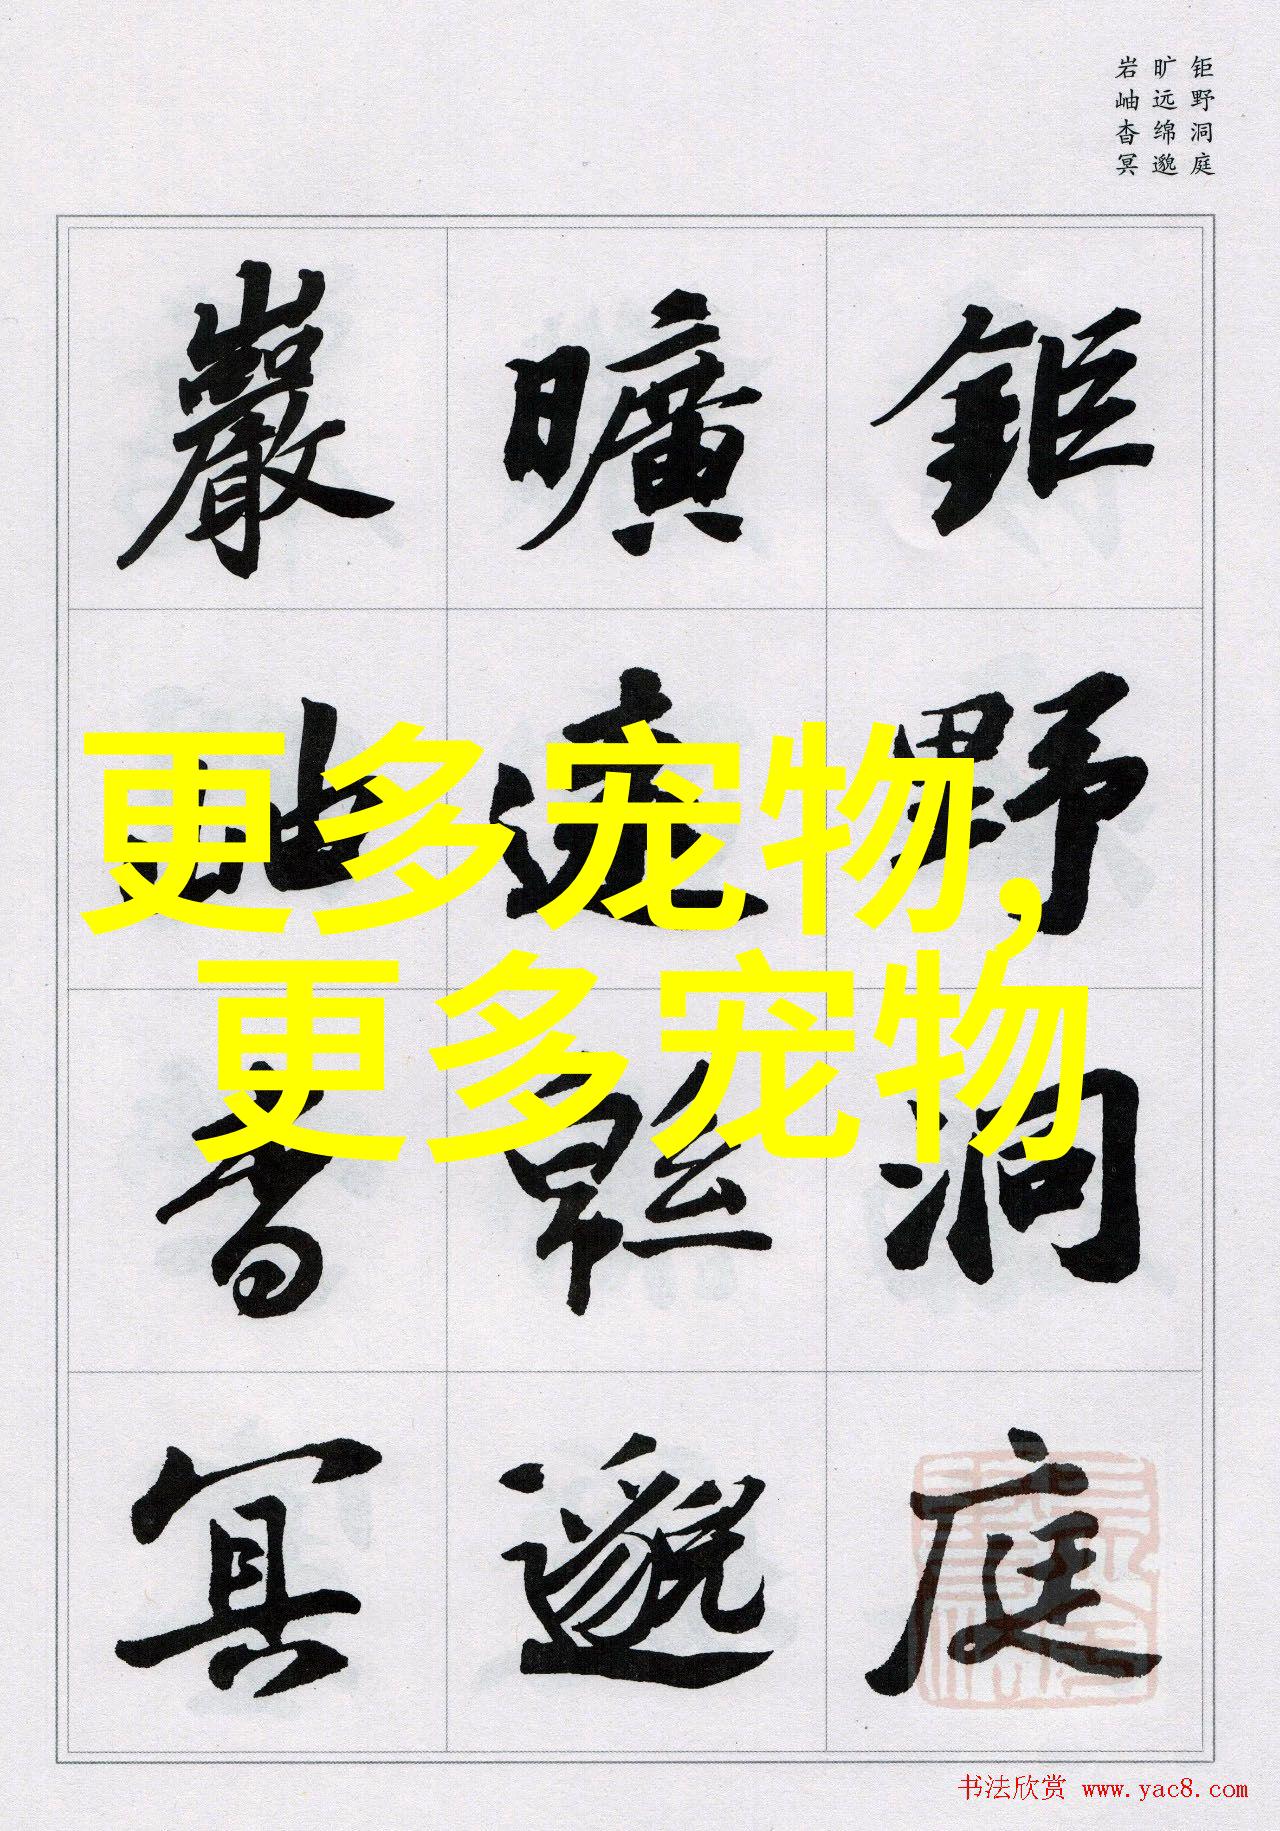 钜野洞庭
旷远绵邈
岩岫杳冥
鉅野洞庭
曠遠緜邈
巖岫杳冥
更多宠物,
更多宠物
书法欣赏 www.yac8.com